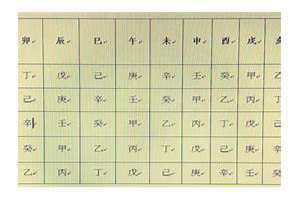 卯 辰 巳 午 未 申 酉 戌
丁 戊 己 庚 辛 壬 癸 甲 乙
己 庚 辛 壬 癸 甲 乙 丙 丁
辛 壬 癸 甲 乙 丙 丁 戊 己
癸 甲 乙 丙 丁 戊 己 庚 辛
乙 丙 丁 戊 己 庚 辛 壬 癸